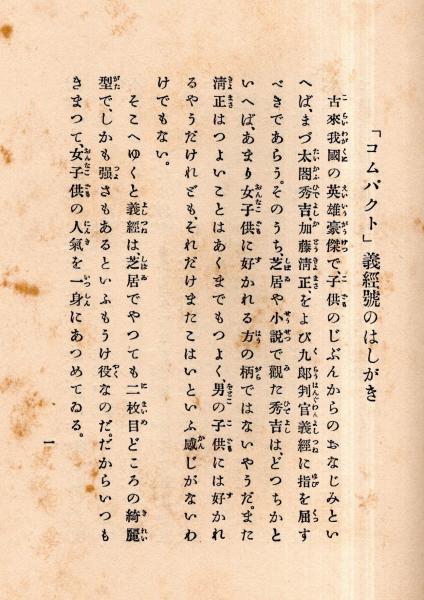 「コムパクト」義經號のはしがき
古來我國の英雄豪傑で、子供のじぶんからのおなじみとい
へば、まづ太閤秀吉、加藤淸正、をよび九郎判官義經に指を屈す
べきであらう。そのうち、芝居や小説で觀た秀吉は、どつちかと
いへば、あまり女子供に好かれる方の柄ではないやうだ。また
淸正はつよいことはあくまでもつよく、男の子供には好かれ
るやうだけれども、それだけまたこはいといふ感じがないわ
けでもない。
そこへゆくと義經は芝居でやつても二枚目どころの綺麗
型で、しかも强さもあるといふもうけ役なのだ。だからいつも
きまつて、女子供の人氣を一身にあつめてゐる。
一